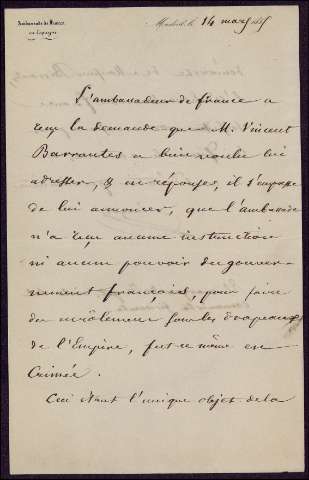 Ambassade de France
en Espagne
Madrid, le 14 mars 1855
L'ambassadeur de france a
reçu la demande que M. Vincent
Barrantes a bien voulu lui
adresser, & en réponse, il s'empresse
de lui annoncer, que l'ambassade
n'a reçu aucune instruction
ni aucun pouvoir du gouver-
nement français, pour faire
des enrôlemens sous les drapeaux
de l'Empire, fut-ce même en
Crimée.
Ceci étant l'unique objet de la